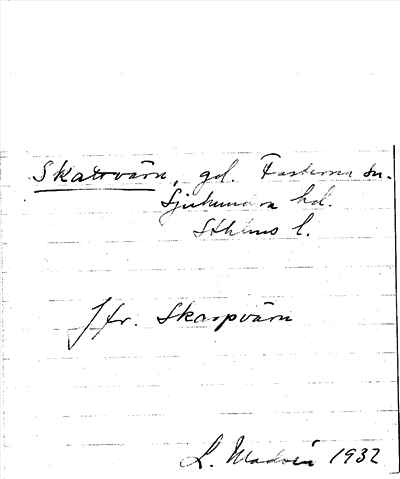 Skarvärn, gd. Fasterna sn.
Sjuhundra hd.
Sthlms l.
Jfr. Skarpvärn
L. Modéin 1932